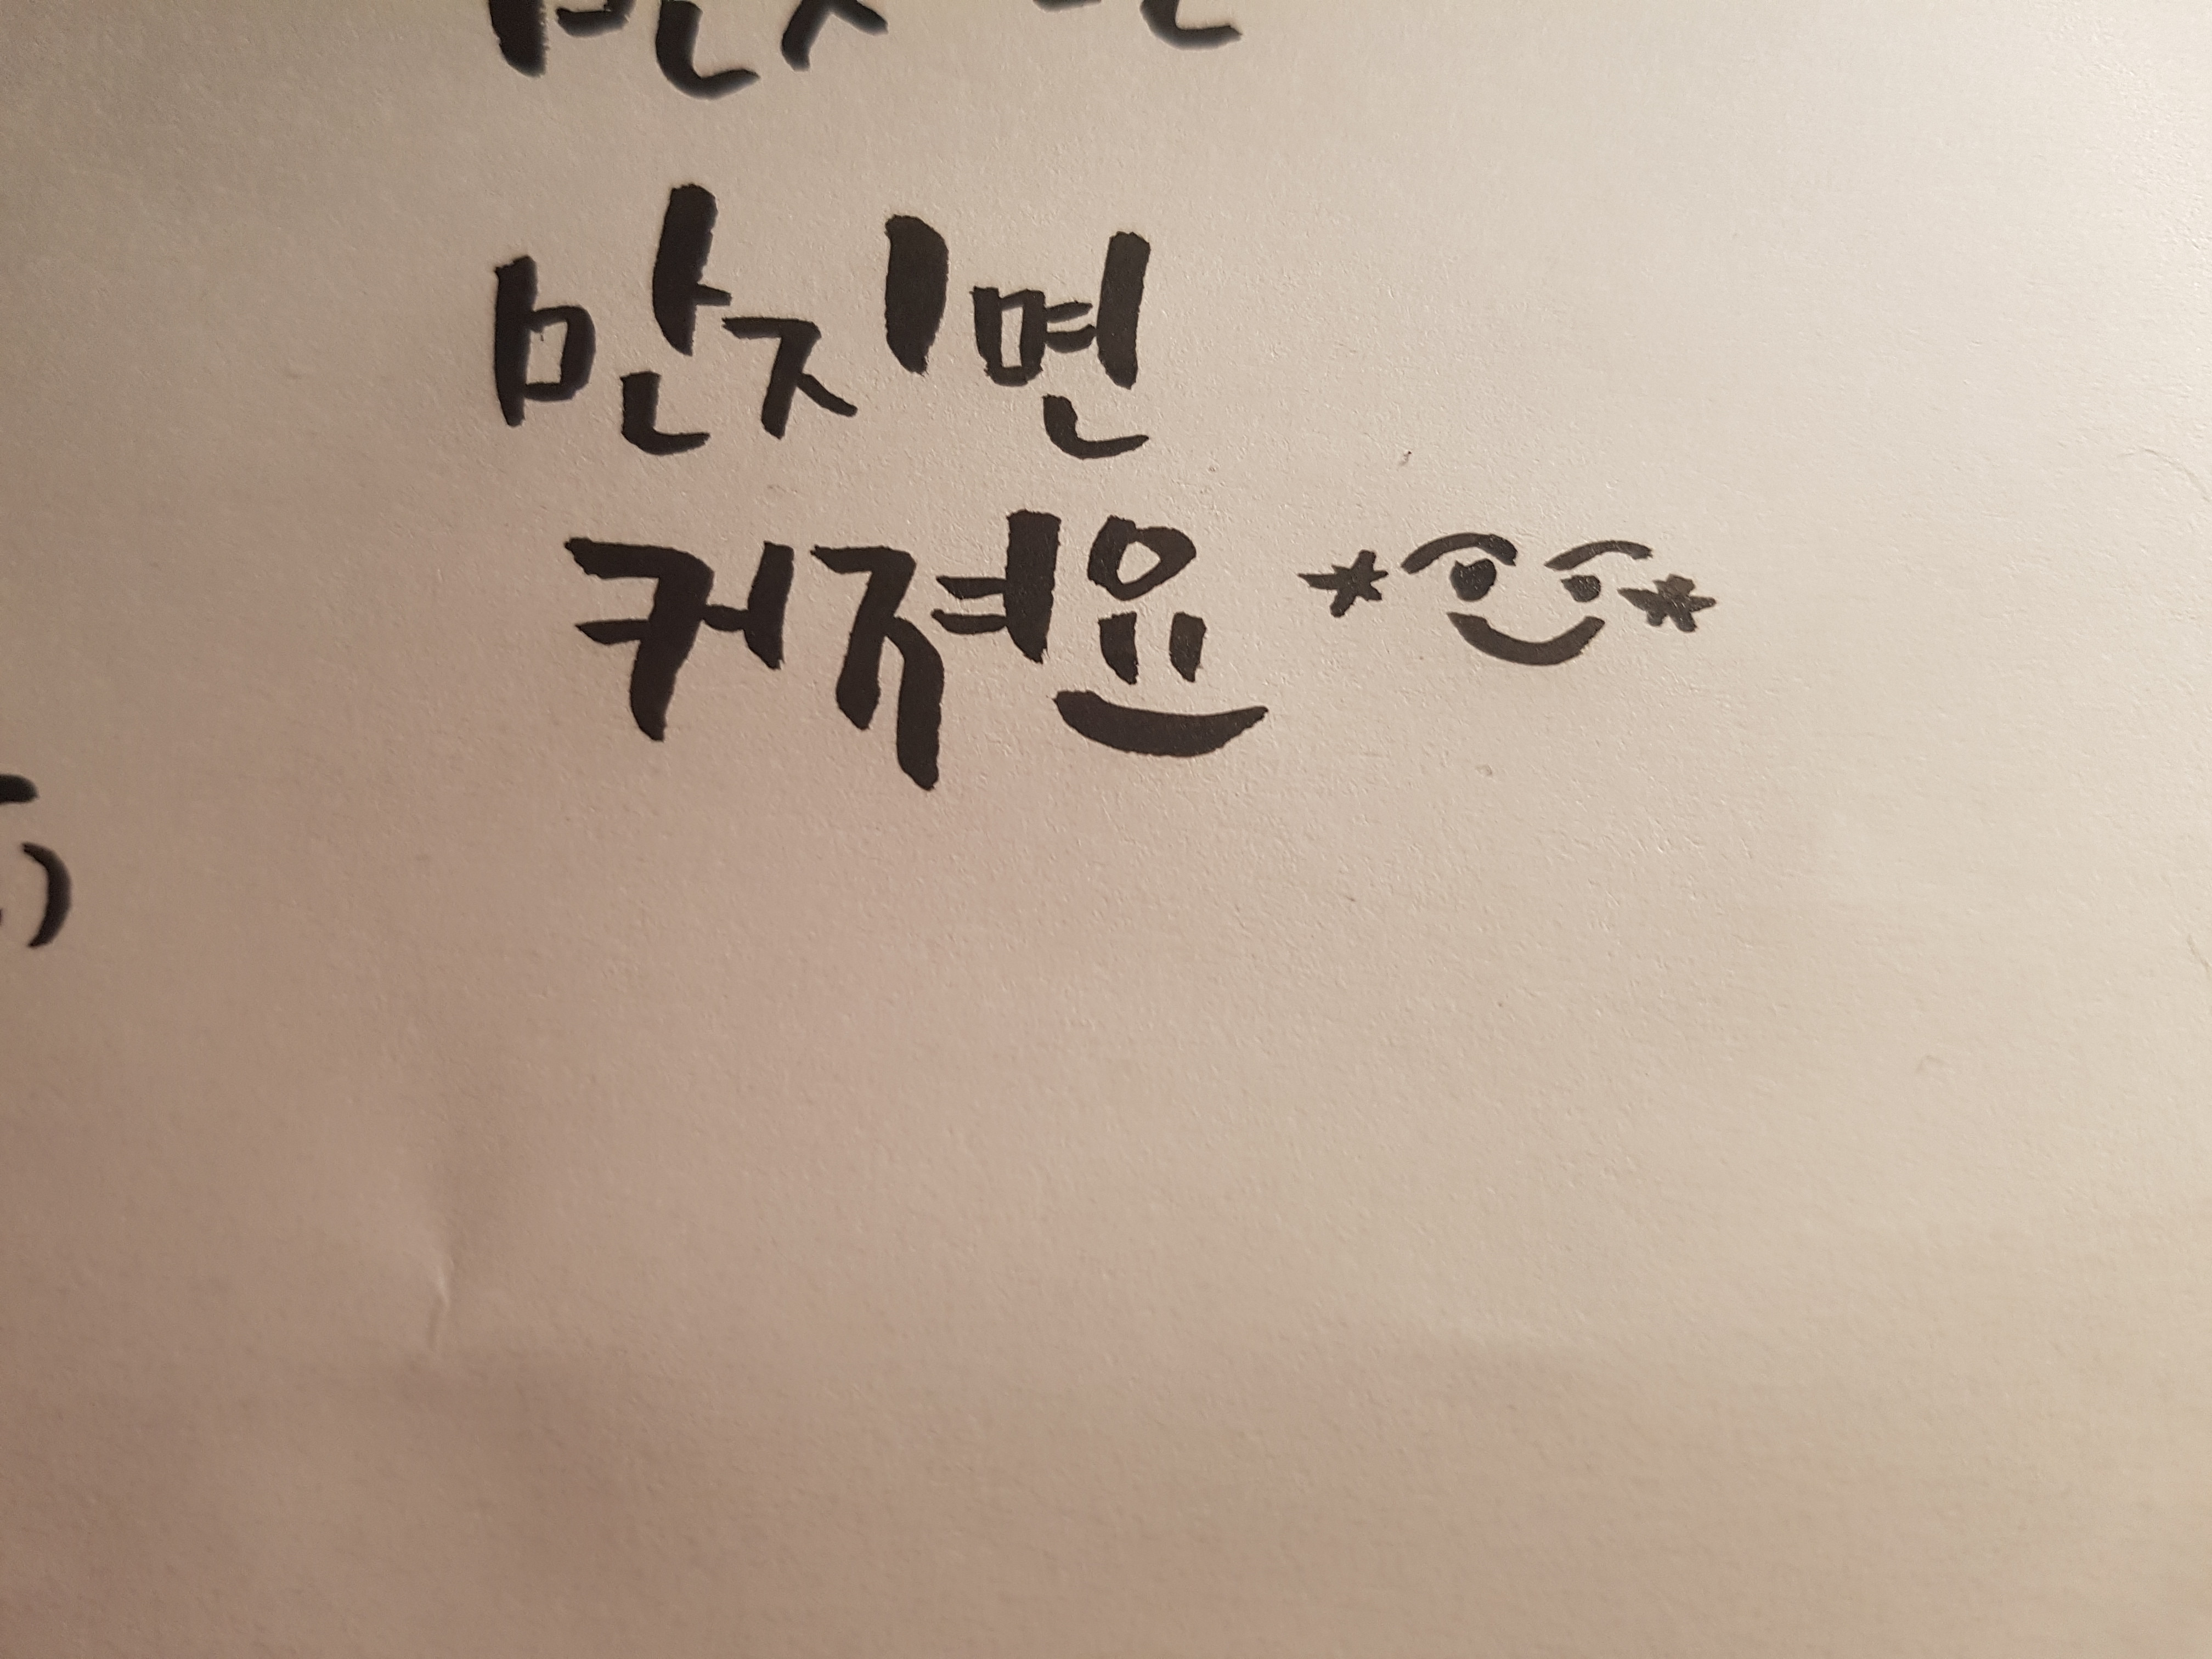 만지면
커져요